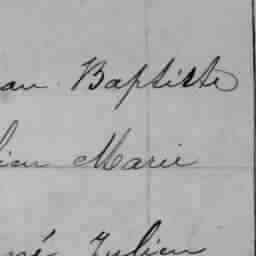 an Baptiste
lien Marie
né Julien